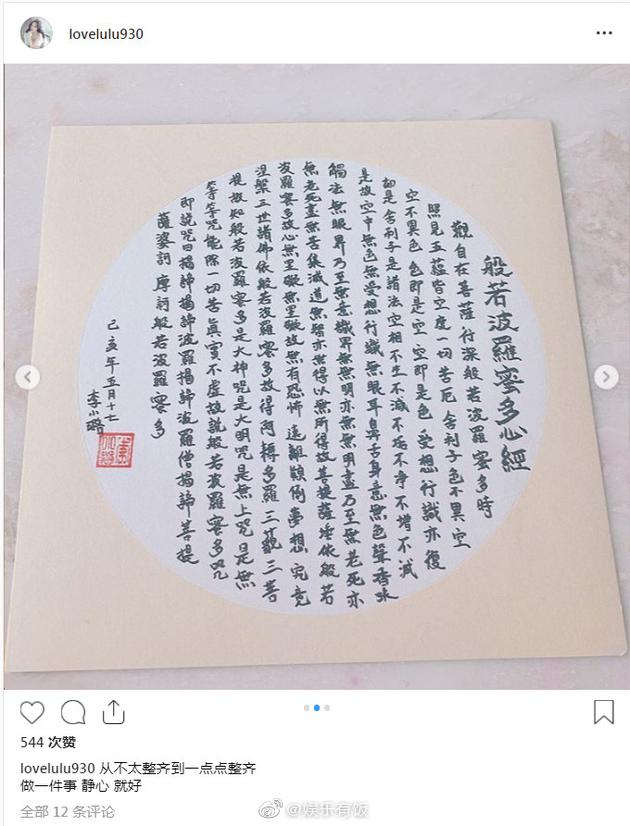 lovelulu930
般若波羅蜜多心經
觀自在菩薩行深般若波羅蜜多時
照見五蘊皆空度一切苦厄舍利子色不異空
空不異色色即是空空即是色受想行識亦復
如是舍利子是諸法空相不生不滅不垢不净不增不減
是故空中無色無受想行識無眼耳鼻舌身意無色聲香味
觸法無眼界乃至無意識界無無明亦無無明盡乃至無老死亦
無老死盡無苦集滅道無智亦無得以無所得故菩提薩埵依般若
波羅蜜多故心無罣礙無罣礙故無有恐怖遠離顛倒夢想究竟
涅槃三世諸佛依般若波羅蜜多故得阿耨多羅三藐三菩
提故知般若波羅蜜多是大神咒是大明咒是無上咒是無
等等咒能除一切苦真實不虛故說般若波羅蜜多咒
即說咒曰揭諦揭諦波羅揭諦波羅僧揭諦菩提
薩婆訶 摩訶般若波羅蜜多
己亥年五月十七
李小璐
544 次赞
lovelulu930 从不太整齐到一点点整齐
做一件事 静心 就好
全部 12 条评论
@娱乐有饭